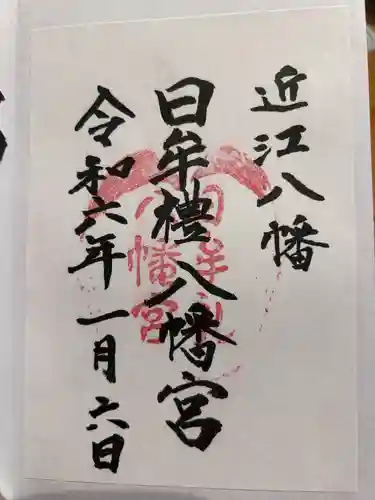 近江八幡
日牟禮八幡宮
令和六年一月六日
日牟礼
八幡宮